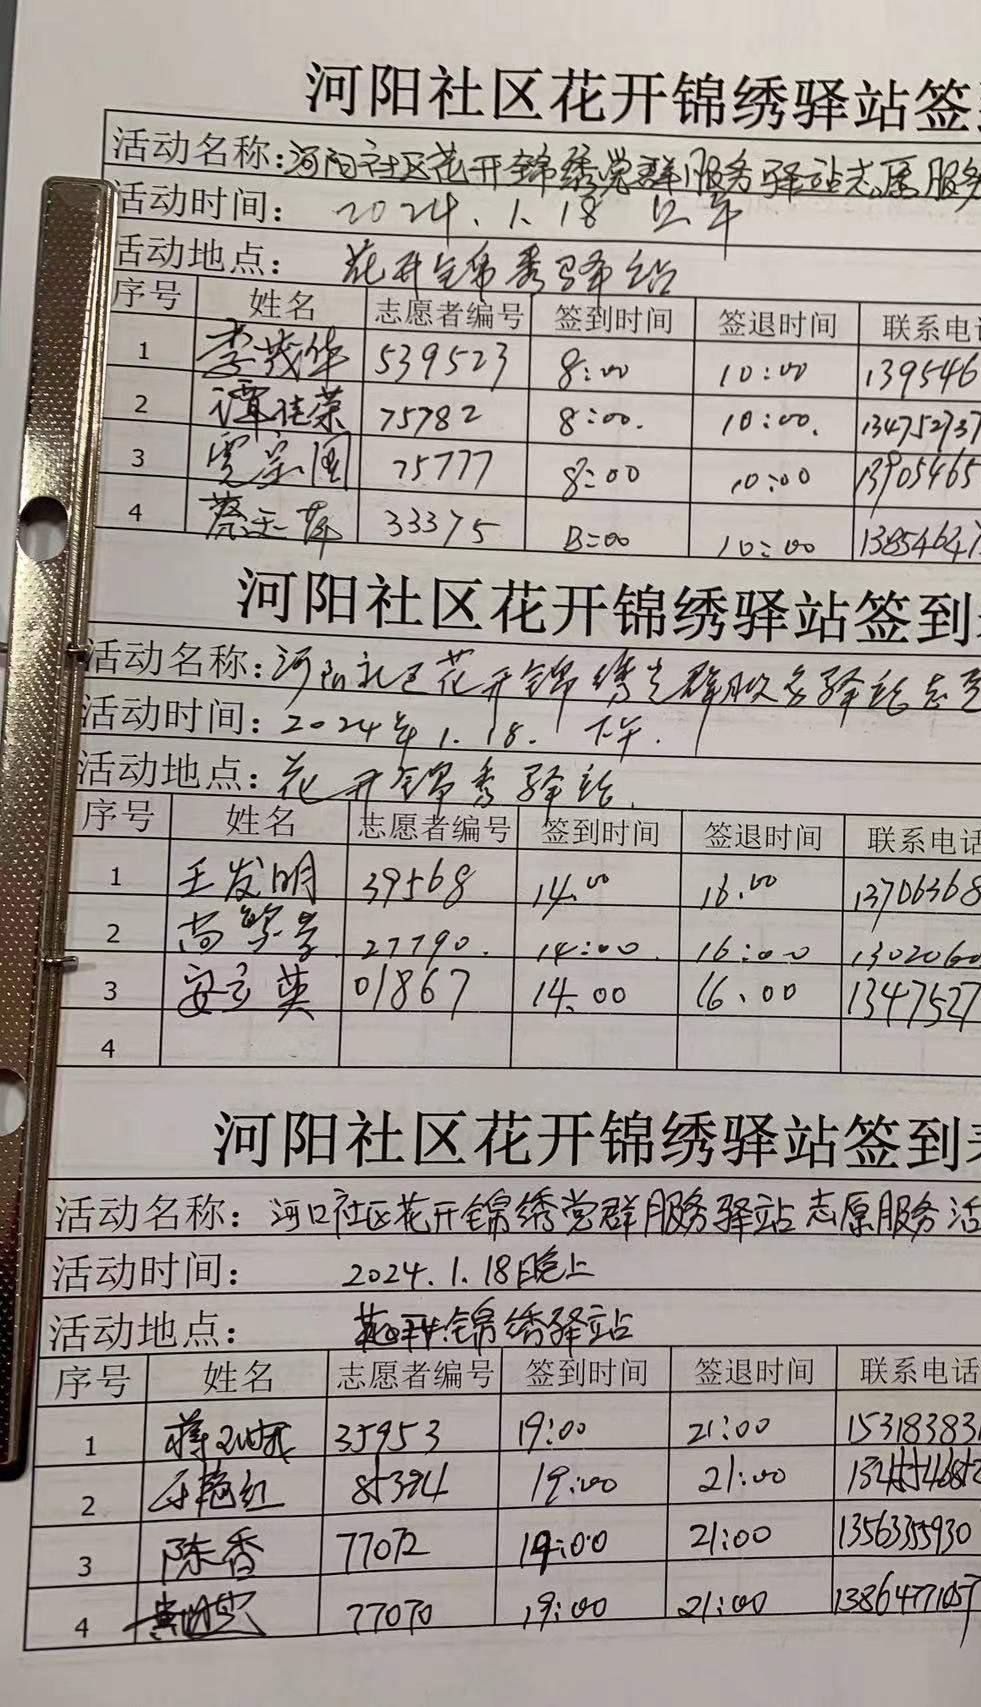 河阳社区花开锦绣驿站签
活动名称:河阳社区花开锦绣党群服务驿站志愿服务
活动时间: 2024.1.18 上午
活动地点: 花开锦秀驿站
序号 姓名 志愿者编号 签到时间 签退时间 联系电
1 李茂华 539523 8:00 10:00 139546
2 谭佳荣 75782 8:00. 10:00. 134752737
3 75777 8:00 10:00 13905465
4 33375 8:00 10:00 13854647
河阳社区花开锦绣驿站签到
活动名称:河阳社区花开锦绣党群服务驿站志愿
活动时间:2024年1.18. 下午.
活动地点:花开锦秀驿站.
序号 姓名 志愿者编号 签到时间 签退时间 联系电话
1 王发明 39568 14.00 16.00 13706368
2 27790. 14:00. 16:00 1302060
3 安立英 01867 14.00 16.00 1347527
4
河阳社区花开锦绣驿站签到
活动名称: 河口社区花开锦绣党群服务驿站志愿服务活
活动时间: 2024.1.18晚上
活动地点: 花开锦绣驿站
序号 姓名 志愿者编号 签到时间 签退时间 联系电话
1 35953 19:00 21:00 153183831
2 85394 19:00 21:00
3 陈香 77072 19:00 21:00 13563355930
4 77070 19:00 21:00 13864771057